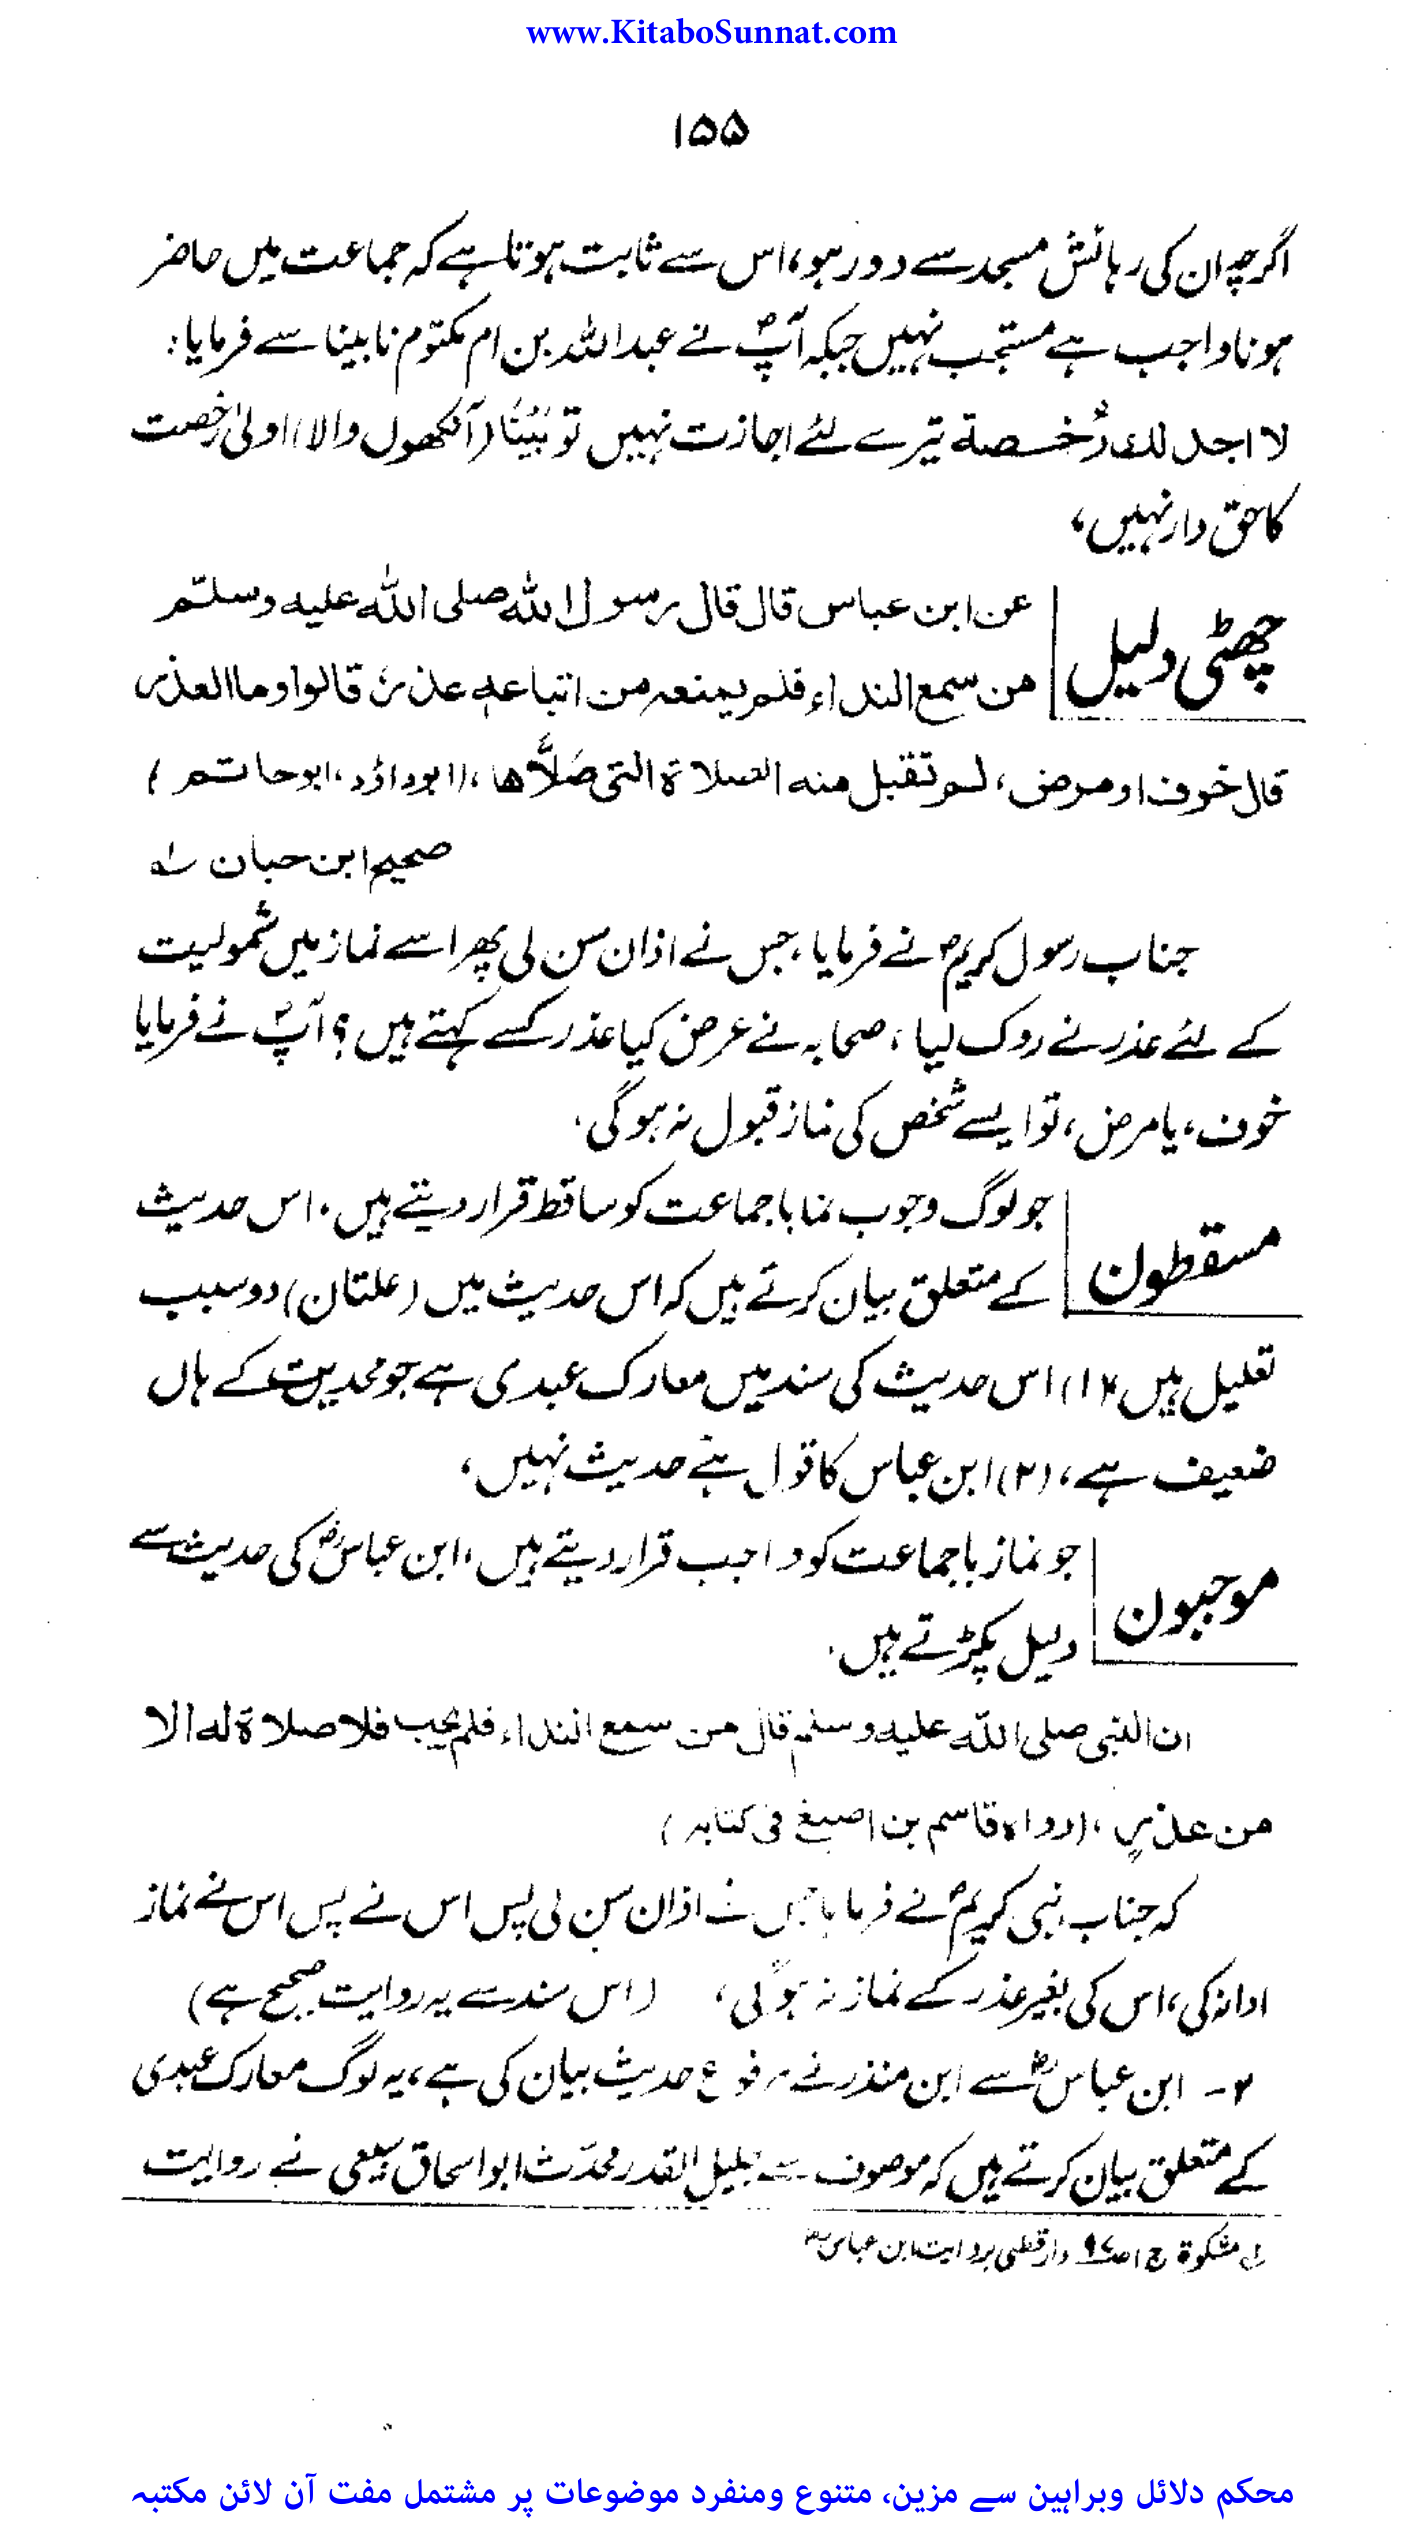 www.KitaboSunnat.com
۱۵۵
اگرچہ ان کی رہائش مسجد سے دور ہو، اس سے ثابت ہوتا ہے کہ جماعت میں حاضر
ہونا واجب ہے مستحب نہیں جبکہ آپؐ نے عبداللہ بن ام مکتوم نابینا سے فرمایا:
لا اجد لك رُخصة تیرے لئے اجازت نہیں تو بینا (آنکھوں والا) اولیٰ رخصت
کا حق دار نہیں،
چھٹی دلیل
عن ابن عباس قال قال رسول الله صلى الله عليه وسلّم
من سمع النداء فلم يمنعه من اتباعه عذرٌ قالوا وما العذر
قال خوف او مرض، لم تقبل منه الصلاة التى صَلَّاها، (ابوداؤد، ابوحاتم)
صحیح ابن حبان لے
جناب رسول کریمؐ نے فرمایا، جس نے اذان سن لی پھر اسے نماز میں شمولیت
کے لئے عذر نے روک لیا، صحابہ نے عرض کیا عذر کسے کہتے ہیں؟ آپؐ نے فرمایا
خوف، یا مرض، تو ایسے شخص کی نماز قبول نہ ہو گی.
مسقطون
جو لوگ وجوب نما باجماعت کو ساقط قرار دیتے ہیں. اس حدیث
کے متعلق بیان کرتے ہیں کہ اس حدیث میں (علتان) دو سبب
تعلیل ہیں (۱) اس حدیث کی سند میں معارک عبدی ہے جو محدیں کے ہاں
ضعیف ہے، (۲) ابن عباس کا قول ہے حدیث نہیں،
موجبون
جو نماز باجماعت کو واجب قرار دیتے ہیں، ابن عباسؓ کی حدیث سے
دلیل پکڑتے ہیں.
ان النبى صلى الله عليه وسلم قال من سمع النداء فلم يجب فلا صلاة له الا
من عذرٍ، (رواه قاسم بن اصبغ فی کتابہ)
کہ جناب نبی کریمؐ نے فرمایا جس نے اذان سن لی پس اس نے پس اس نے نماز
ادا نہ کی، اس کی بغیر عذر کے نماز نہ ہو گی، (اس سند سے یہ روایت صحیح ہے)
۲- ابن عباسؓ سے ابن منذر نے مرفوع حدیث بیان کی ہے، یہ لوگ معارک عبدی
کے متعلق بیان کرتے ہیں کہ موصوف سے جلیل القدر محدّث ابو اسحاق سبیعی نے روایت
لے مشکوٰۃ ج ۱ ص۹۷ دارقطنی بروایت ابن عباسؓ
محکم دلائل وبراہین سے مزین، متنوع ومنفرد موضوعات پر مشتمل مفت آن لائن مکتبہ